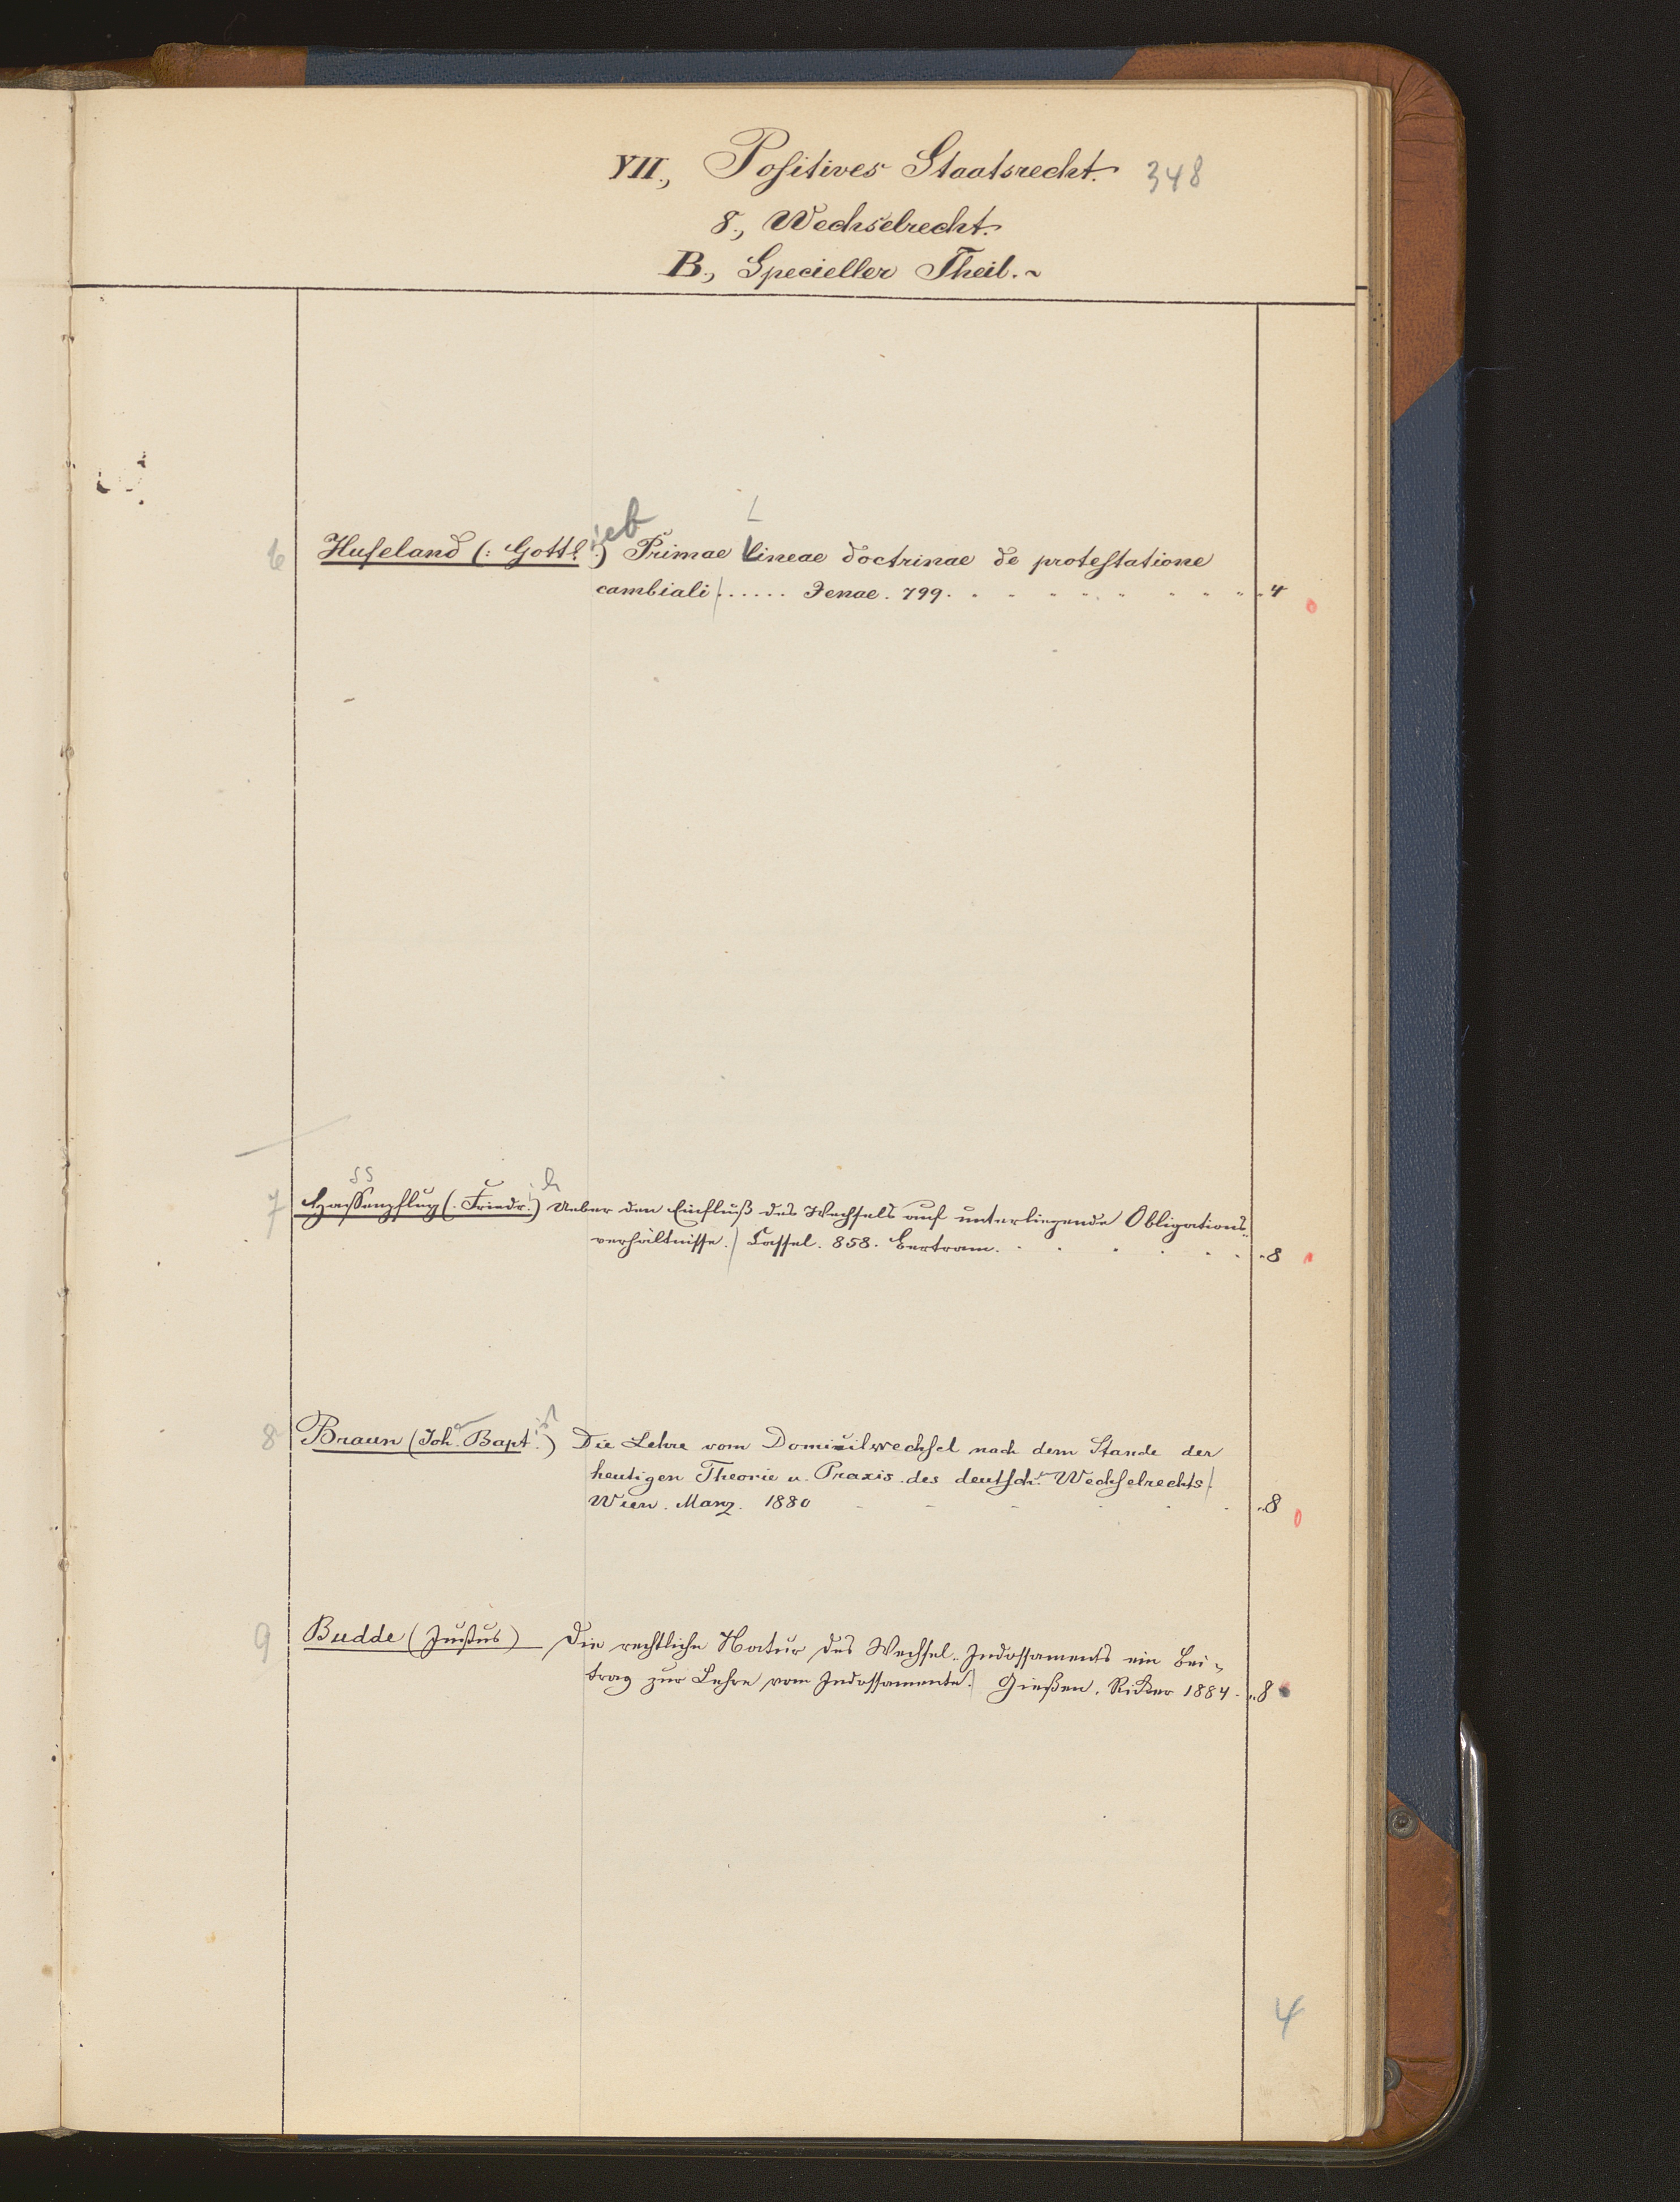 VII., Positives Staatsrecht. 348
8., Wechselrecht.
B., Specieller Theil.
6 Hufeland (: Gottl.ieb) Primae Lineae doctrinae de protestatione
cambiali ...... Jenae. 799. 4
7 Hassenpflug (. Friedr.ich) Ueber den Einfluß des Wechsels auf unterliegende Obligations-
verhältnisse. Cassel. 858. Bertram. 8
8 Braun (Joh. Bapt.ist) Die Lehre vom Domicilwechsel nach dem Stande der
heutigen Theorie u. Praxis des deutsch. Wechselrechts
Wien. Manz. 1880 8
9 Budde (Justus) Die rechtliche Natur des Wechsel-Indossaments ein Bei-
trag zur Lehre vom Indossamente. Gießen. Ricker 1884. 8
4